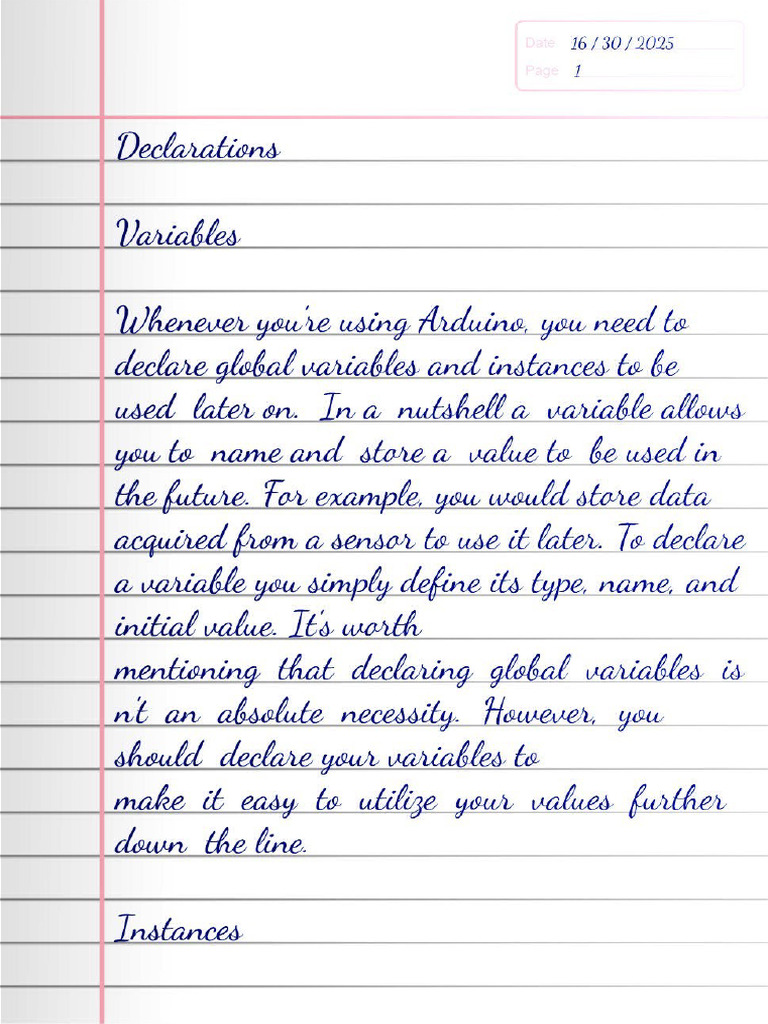 Date 16 / 30 / 2025
Page 1
Declarations
Variables
Whenever you're using Arduino, you need to
declare global variables and instances to be
used later on. In a nutshell a variable allows
you to name and store a value to be used in
the future. For example, you would store data
acquired from a sensor to use it later. To declare
a variable you simply define its type, name, and
initial value. It's worth
mentioning that declaring global variables is
n't an absolute necessity. However, you
should declare your variables to
make it easy to utilize your values further
down the line.
Instances